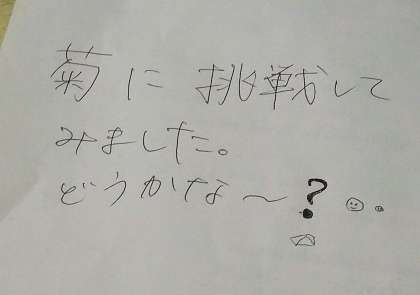 菊に挑戦して
みました。
どうかな～?